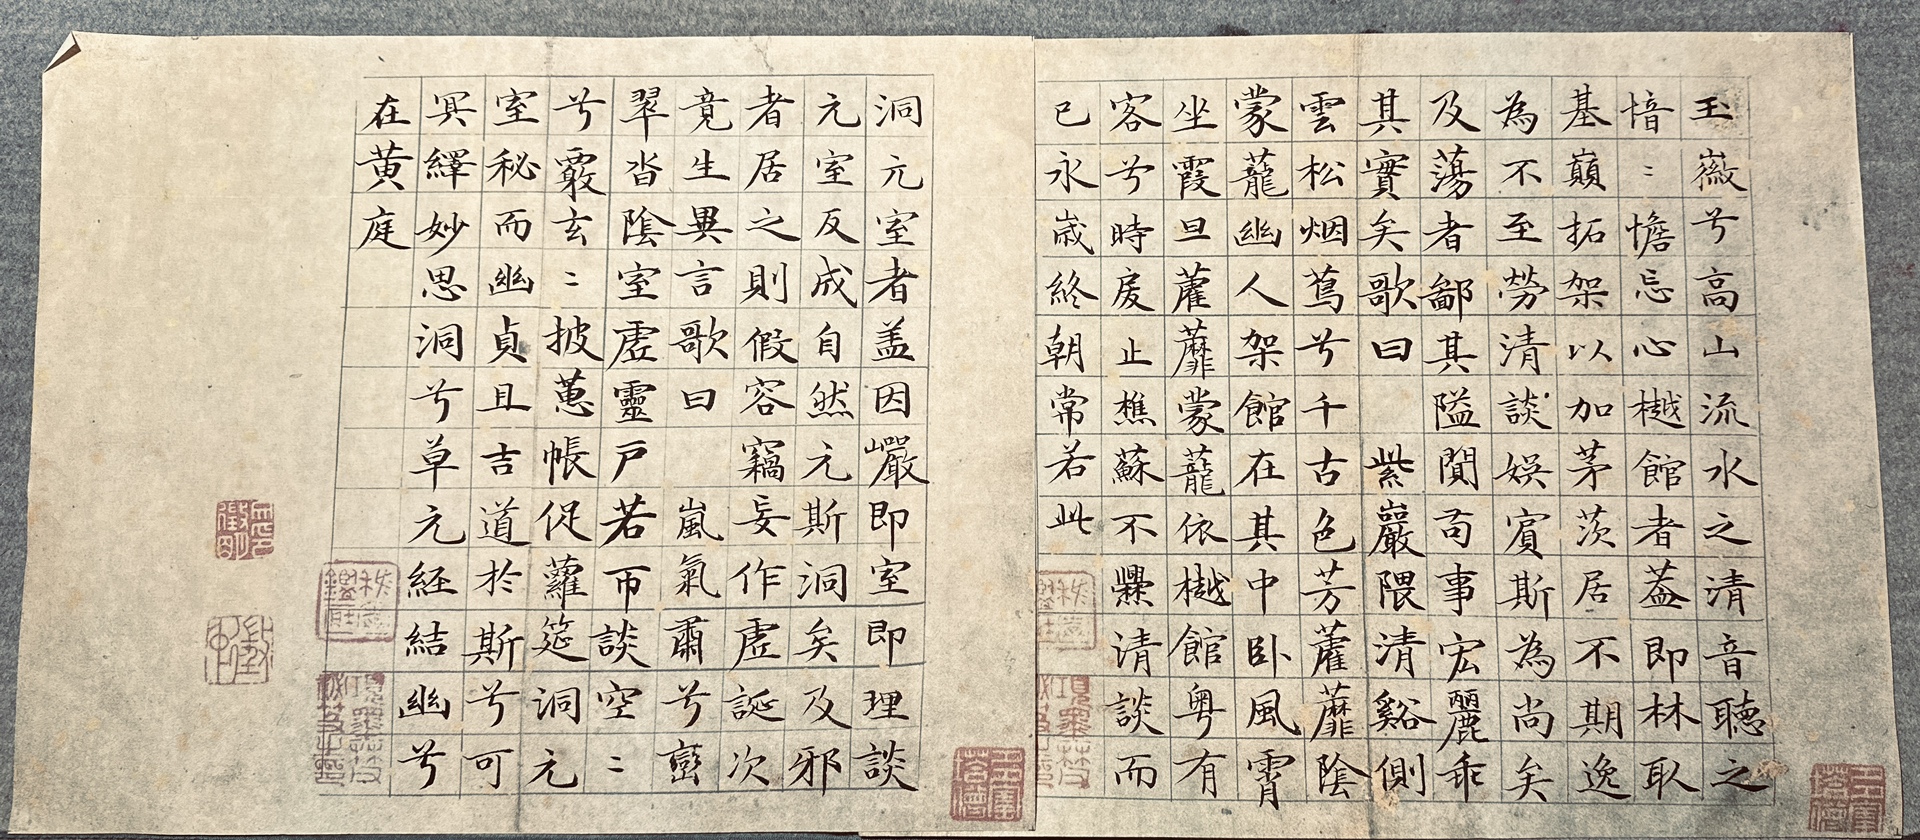 玉徽兮高山流水之清音聽之
愔〻憺忘心樾館者蓋即林取
基巔拓架以加茅茨居不期逸
為不至勞清談娛賓斯為尚矣
及蕩者鄙其隘閴苟事宏麗乖
其實矣歌曰 紫巖隈清谿側
雲松烟蔦兮千古色芳藿蘼陰
蒙蘢幽人架館在其中卧風霄
坐霞旦藿蘼蒙蘢依樾館粵有
客兮時戾止樵蘇不爨清談而
已永歳終朝常若此
洞元室者盖因巖即室即理談
元室反成自然元斯洞矣及邪
者居之則假容竊妄作虛誕次
竟生異言歌曰 嵐氣肅兮巒
翠沓陰室虛靈戶若帀談空〻
兮覈玄〻披蕙帳促蘿筵洞元
室秘而幽貞且吉道於斯兮可
冥繹妙思洞兮草元經結幽兮
在黄庭